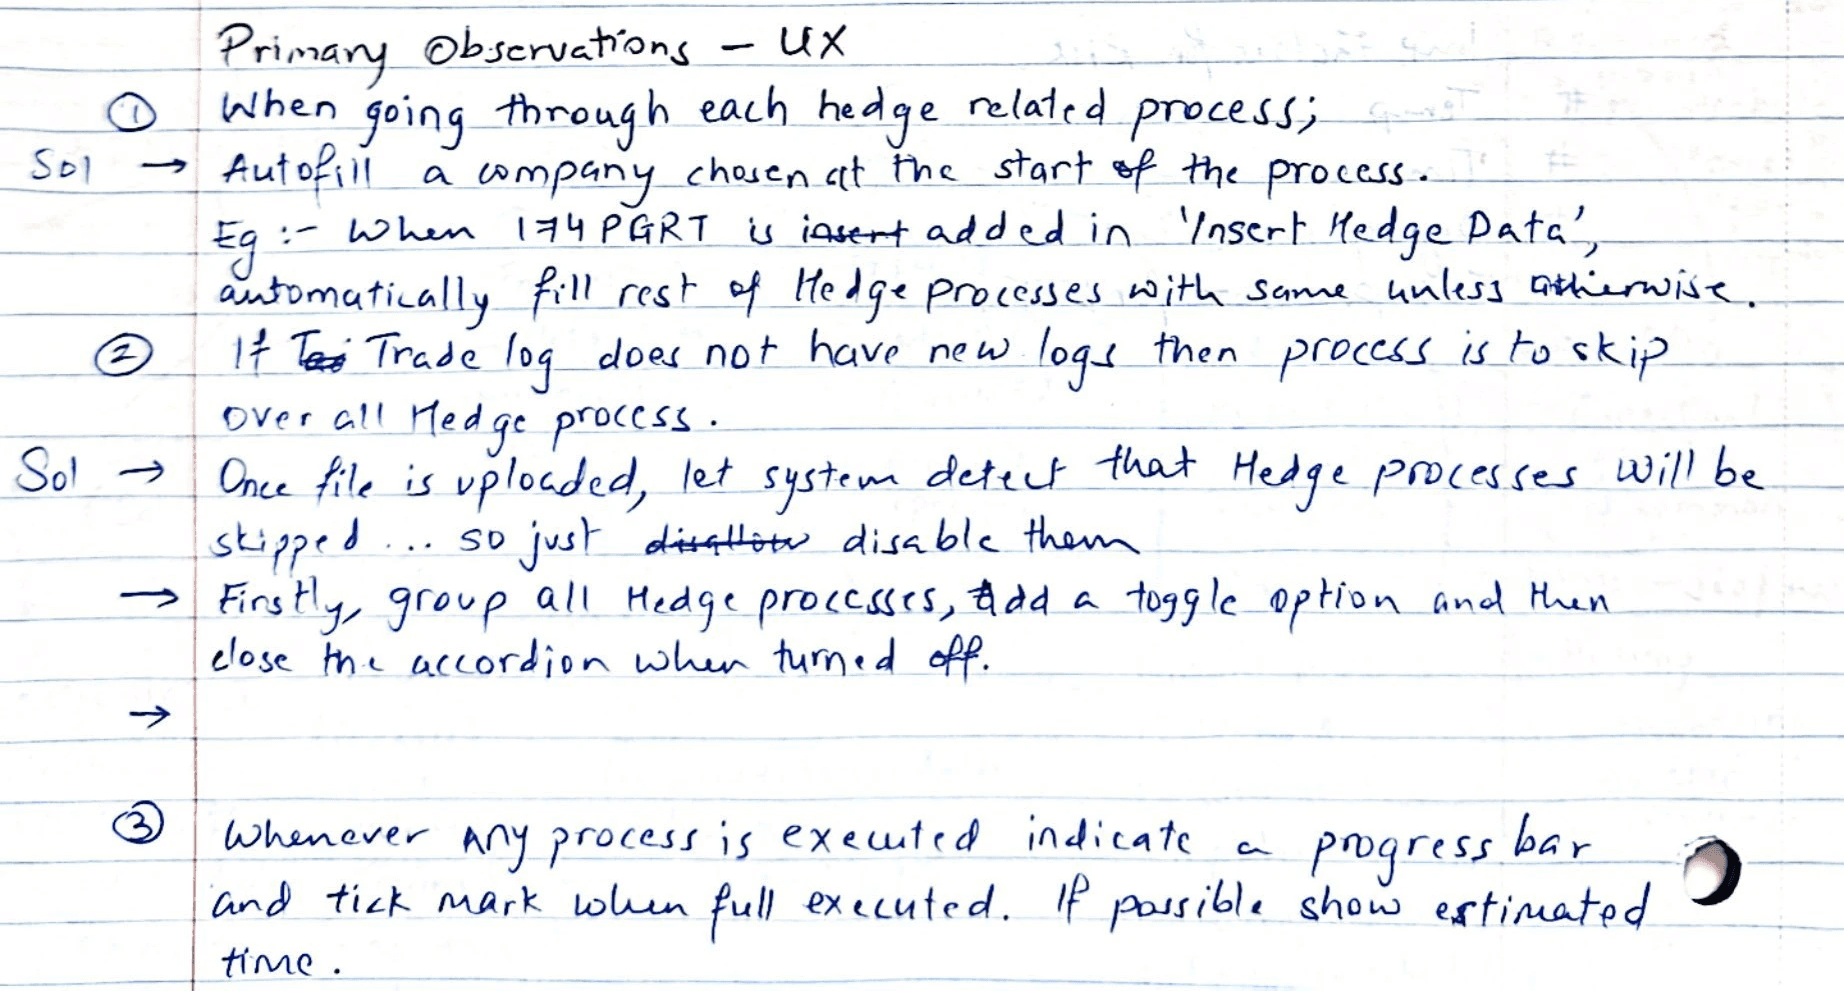 Primary Observations - UX
① When going through each hedge related process;
Sol → Autofill a company chosen at the start of the process.
Eg :- When 174 PGRT is insert added in 'Insert Hedge Data',
automatically fill rest of Hedge processes with same unless otherwise.
② If Trade log does not have new logs then process is to skip
over all Hedge process.
Sol → Once file is uploaded, let system detect that Hedge processes will be
skipped ... so just disallow disable them
→ Firstly, group all Hedge processes, Add a toggle option and then
close the accordion when turned off.
→
③ Whenever Any process is executed indicate a progress bar
and tick mark when full executed. If possible show estimated
time.